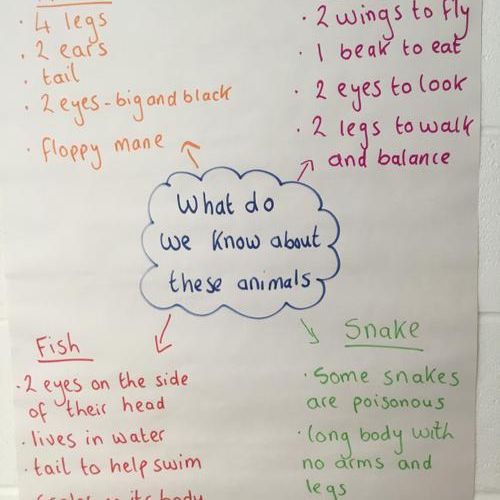 · 4 legs
· 2 ears
· tail
· 2 eyes - big and black
· floppy mane
· 2 wings to fly
· 1 beak to eat
· 2 eyes to look
· 2 legs to walk
and balance
What do
we know about
these animals
Fish
· 2 eyes on the side
of their head
· lives in water
· tail to help swim
Snake
· Some snakes
are poisonous
· long body with
no arms and
legs